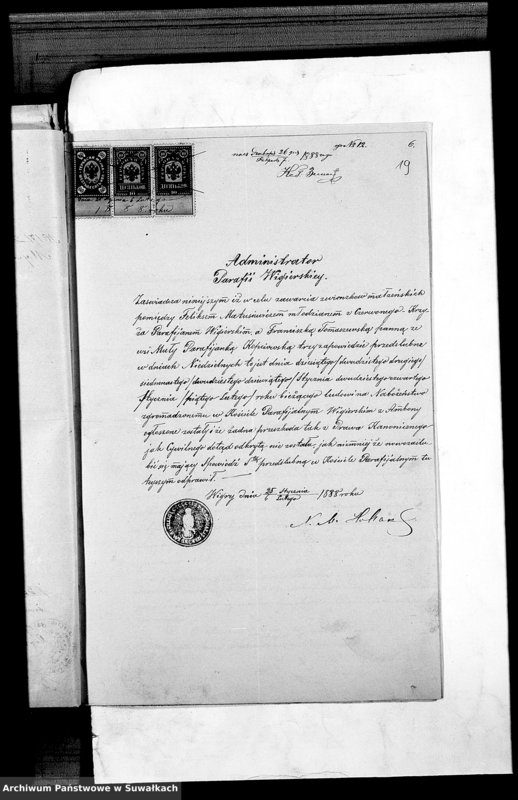 № 12.
6.
19
1888
Administrator
Parafii Wigierskiej.
Zaświadcza niniejszym iż w celu zawarcia związków małżeńskich
pomiędzy Feliksem Matusiewiczem młodzianem z Czerwonego Krzy-
ża Parafijanem Wigierskim, a Franciszką Tomaszewską panną ze
wsi Mały Parafijanką trzy zapowiedzie przedślubne
w dniach Niedzielnych to jest dnia dziesiątego/dwudziestego drugiego/
siedmnastego/dwudziestego dziewiątego/Stycznia dwudziestego czwartego
Stycznia /piątego Lutego/ roku bieżącego ludowi na Nabożeństwo
zgromadzonemu w Kościele Parafijalnym Wigierskim z Ambony
ogłoszone zostały i że żadna przeszkoda tak z Prawa Kanonicznego
jak Cywilnego dotąd odkrytą nie została, jak niemniej że nowozaślu-
bić się mający Spowiedź przedślubną w Kościele Parafijalnym tu-
tejszym odprawił.
Wigry dnia 25/6 Stycznia/Lutego 1888 roku
Archiwum Państwowe w Suwałkach